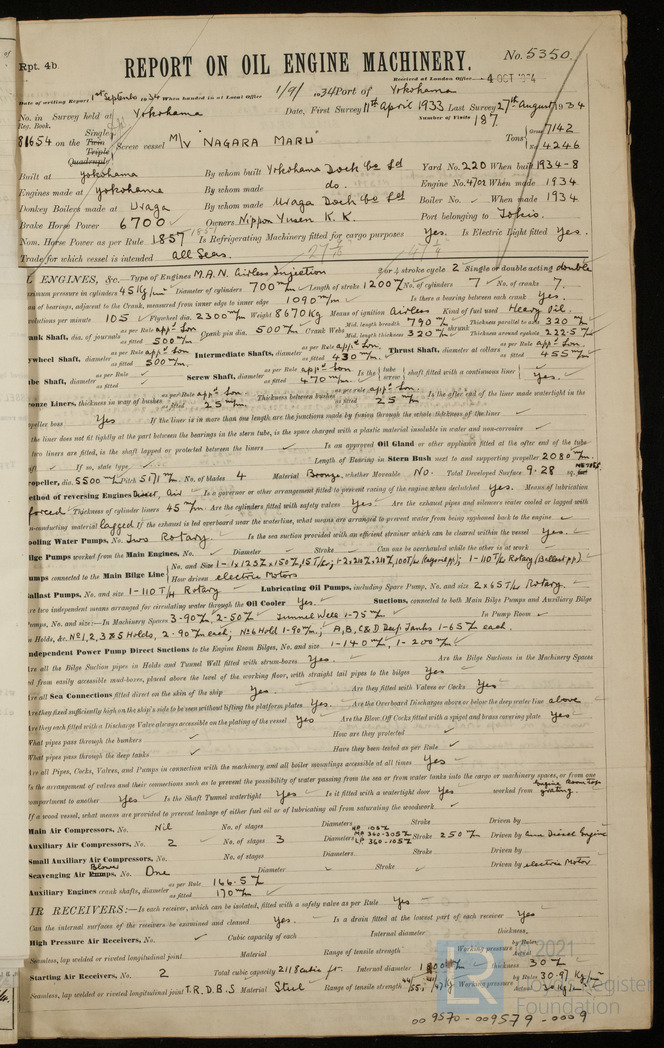 Rpt. 4b.
REPORT ON OIL ENGINE MACHINERY.
No. 5350.
Received at London Office 4 OCT
Date of writing Report 1st September 1934 When handed in at Local Office 1/9/ 1934 Port of Yokohama
No. in Reg. Book. Survey held at Yokohama Date, First Survey 11th April 1933 Last Survey 27th August 1934
Number of Visits 187
81654 on the Single Twin Triple Quadruple Screw vessel M/V "NAGARA MARU" Tons Gross 7142 Net 4246
Built at Yokohama By whom built Yokohama Dock Co Ld Yard No. 220 When built 1934-8
Engines made at Yokohama By whom made do. Engine No. 4702 When made 1934
Donkey Boilers made at Uraga By whom made Uraga Dock Co Ld Boiler No. When made 1934
Brake Horse Power 6700 Owners Nippon Yusen K.K. Port belonging to Tokio.
Nom. Horse Power as per Rule 1857 Is Refrigerating Machinery fitted for cargo purposes Yes. Is Electric Light fitted Yes.
Trade for which vessel is intended all Seas.
ENGINES, &c.—Type of Engines M.A.N. Airless Injection 2 or 4 stroke cycle 2 Single or double acting double
pressure in cylinders 45 Kg/cm² Diameter of cylinders 700 m/m Length of stroke 1200 No. of cylinders 7 No. of cranks 7.
of bearings, adjacent to the Crank, measured from inner edge to inner edge 1090 m/m Is there a bearing between each crank Yes.
per minute 105 Flywheel dia. 2300 m/m Weight 8670 Kg Means of ignition Airless Kind of fuel used Heavy Oil.
Shaft, dia. of journals as per Rule app'd Lon as fitted 500 m/m Crank pin dia. 500 m/m Crank Webs Mid. length breadth 790 Mid. length thickness 320 shrunk Thickness parallel to axis 320 Thickness around eyehole 222.5
Shaft, diameter as per Rule app'd Lon as fitted 500 m/m Intermediate Shafts, diameter as per Rule app'd Lon as fitted 430 m/m Thrust Shaft, diameter at collars as per Rule app'd Lon. as fitted 455 m/m
Shaft, diameter as per Rule as fitted Screw Shaft, diameter as per Rule app'd Lon as fitted 470 m/m Is the tube screw shaft fitted with a continuous liner Yes.
Liners, thickness in way of bushes as per Rule app'd Lon as fitted 25 m/m Thickness between bushes as per Rule app'd Lon as fitted 25 m/m Is the after end of the liner made watertight in the
boss Yes If the liner is in more than one length are the junctions made by fusion through the whole thickness of the liner
the liner does not fit tightly at the part between the bearings in the stern tube, is the space charged with a plastic material insoluble in water and non-corrosive
two liners are fitted, is the shaft lapped or protected between the liners Is an approved Oil Gland or other appliance fitted at the after end of the tube
If so, state type Length of Bearing in Stern Bush next to and supporting propeller 2080 m/m
Propeller, dia. 5500 m/m Pitch 5171 m/m No. of blades 4 Material Bronze, whether Moveable No. Total Developed Surface 9.28
Method of reversing Engines Direct, Air Is a governor or other arrangement fitted to prevent racing of the engine when declutched Yes. Means of lubrication
forced Thickness of cylinder liners 45 m/m Are the cylinders fitted with safety valves Yes Are the exhaust pipes and silencers water cooled or lagged with
non-conducting material lagged If the exhaust is led overboard near the waterline, what means are arranged to prevent water from being syphoned back to the engine
Cooling Water Pumps, No. Two Rotary. Is the sea suction provided with an efficient strainer which can be cleared within the vessel Yes.
Bilge Pumps worked from the Main Engines, No. Diameter Stroke Can one be overhauled while the other is at work
Pumps connected to the Main Bilge Line No. and Size How driven electric Motors
Ballast Pumps, No. and size 1-110 T/H Rotary Lubricating Oil Pumps, including Spare Pump, No. and size 2 x 65 T/H Rotary.
Are two independent means arranged for circulating water through the Oil Cooler Yes. Suctions, connected to both Main Bilge Pumps and Auxiliary Bilge
Pumps, No. and size:—In Machinery Spaces 3-90, 2-50 Tunnel Well 1-75 In Pump Room
In Holds, &c. No 1, 2, 3 & 5 Holds, 2-90 m/m each; No 6 Hold 1-90 m/m; A, B, C & D Deep Tanks 1-65 each.
Independent Power Pump Direct Suctions to the Engine Room Bilges, No. and size 1-140, 1-200
Are all the Bilge Suction pipes in Holds and Tunnel Well fitted with strum-boxes Yes. Are the Bilge Suctions in the Machinery Spaces
led from easily accessible mud-boxes, placed above the level of the working floor, with straight tail pipes to the bilges Yes
Are all Sea Connections fitted direct on the skin of the ship Yes Are they fitted with Valves or Cocks Yes
Are they fixed sufficiently high on the ship's side to be seen without lifting the platform plates Yes. Are the Overboard Discharges above or below the deep water line above
Are they each fitted with a Discharge Valve always accessible on the plating of the vessel Yes Are the Blow Off Cocks fitted with a spigot and brass covering plate Yes
What pipes pass through the bunkers How are they protected
What pipes pass through the deep tanks Have they been tested as per Rule
Are all Pipes, Cocks, Valves, and Pumps in connection with the machinery and all boiler mountings accessible at all times Yes
Is the arrangement of valves and their connections such as to prevent the possibility of water passing from the sea or from water tanks into the cargo or machinery spaces, or from one
compartment to another Yes Is the Shaft Tunnel watertight Yes Is it fitted with a watertight door Yes worked from Engine Room top grating.
If a wood vessel, what means are provided to prevent leakage of either fuel oil or of lubricating oil from saturating the woodwork
Main Air Compressors, No. Nil No. of stages Diameters Stroke Driven by
Auxiliary Air Compressors, No. 2 No. of stages 3 Diameters HP 105 MP 360-305 LP 360-105 Stroke 250 Driven by Diesel Engine
Small Auxiliary Air Compressors, No. No. of stages Diameters Stroke Driven by
Scavenging Air Pumps, Blower No. One Diameter Stroke Driven by electric Motor
Auxiliary Engines crank shafts, diameter as per Rule 166.5 as fitted 170 m/m
AIR RECEIVERS:—Is each receiver, which can be isolated, fitted with a safety valve as per Rule Yes
Can the internal surfaces of the receivers be examined and cleaned Yes. Is a drain fitted at the lowest part of each receiver Yes
High Pressure Air Receivers, No. Cubic capacity of each Internal diameter thickness,
Seamless, lap welded or riveted longitudinal joint Material Range of tensile strength Working pressure by Rules Actual
Starting Air Receivers, No. 2 Total cubic capacity 2118 cubic ft. Internal diameter 1800 thickness 30
Seamless, lap welded or riveted longitudinal joint T.R.D.B.S Material Steel Range of tensile strength Working pressure by Rules 30.97 Kg/cm² Actual 30 Kg/cm²
© 2021
Lloyd's Register
Foundation
009570-009579-0009